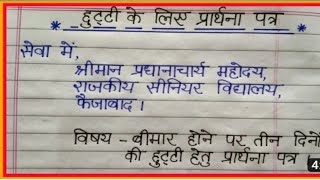 छुट्टी के लिए प्रार्थना पत्र
सेवा में,
श्रीमान प्रधानाचार्य महोदय,
राजकीय सीनियर विद्यालय,
फैजाबाद ।
विषय - बीमार होने पर तीन दिनों
की छुट्टी हेतु प्रार्थना पत्र